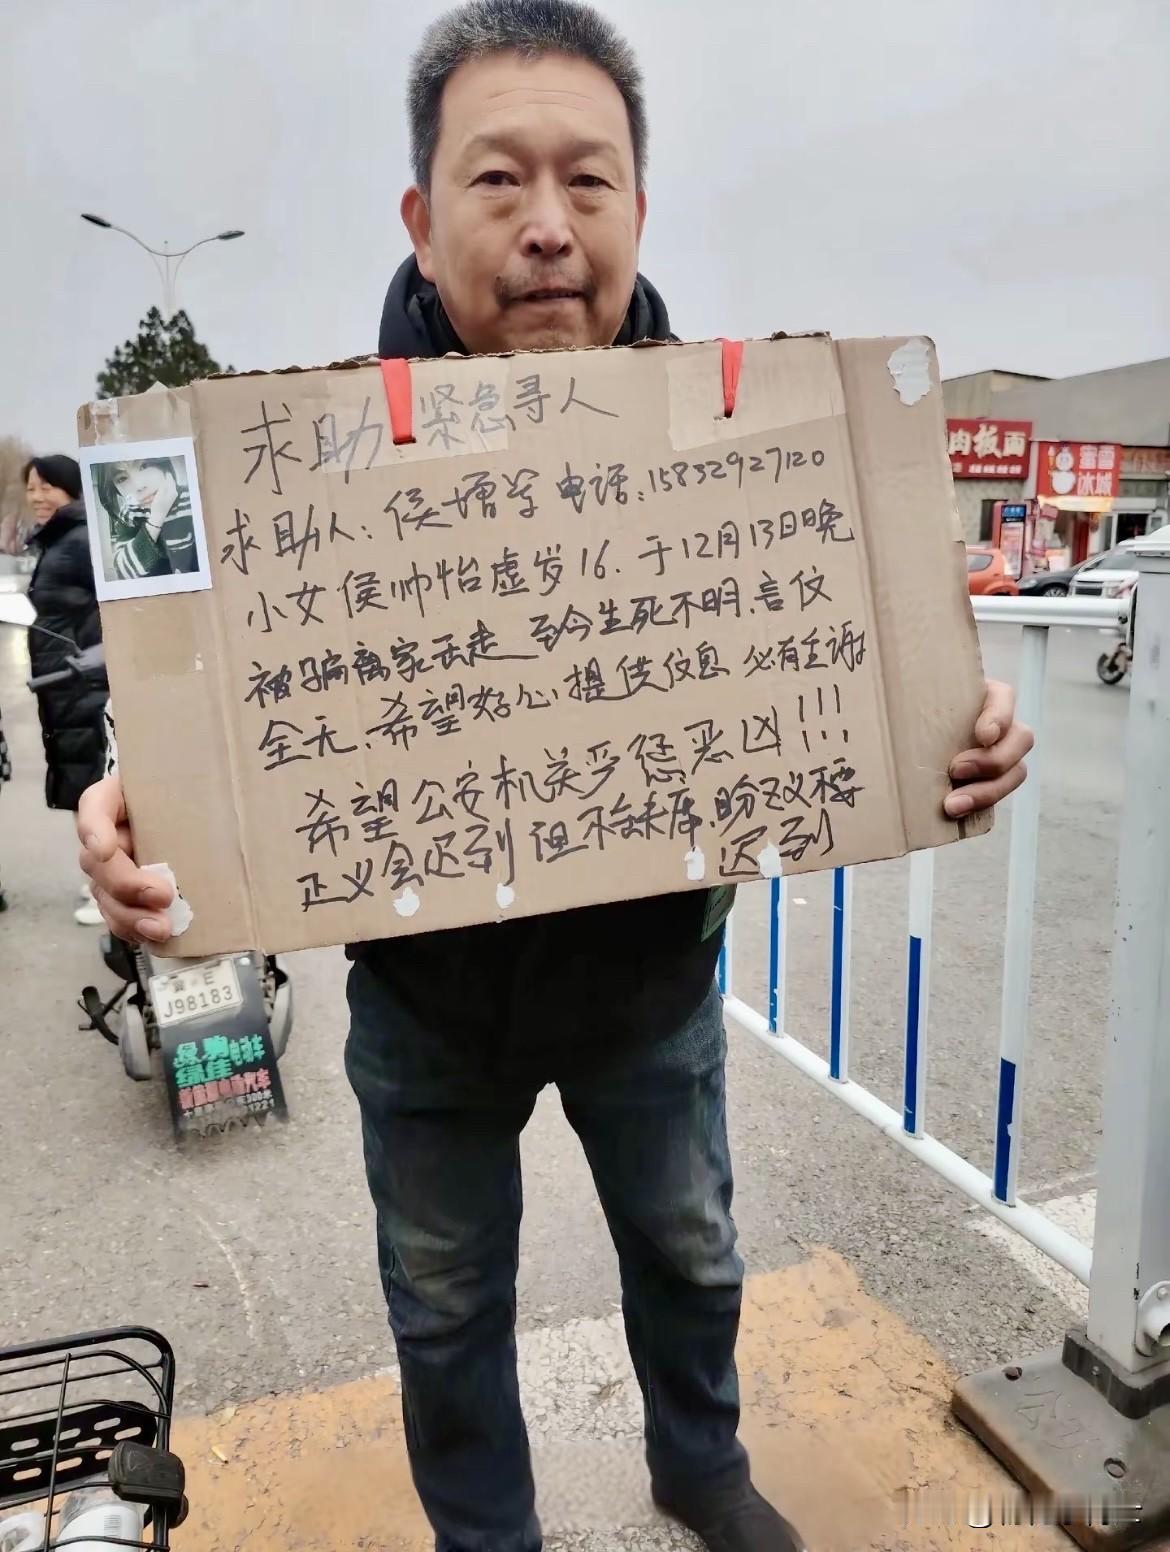 求助 紧急寻人
求助人：侯增学 电话：15832927120
小女侯帅怡虚岁16.于12月13日晚
被骗离家出走 至今生死不明.音仪
全无.希望好心提供信息 必有重谢
希望公安机关严惩恶凶!!!
正义会迟到 但不会缺席.盼正义不要
迟到
肉板面
蜜雪
冰城
J98183